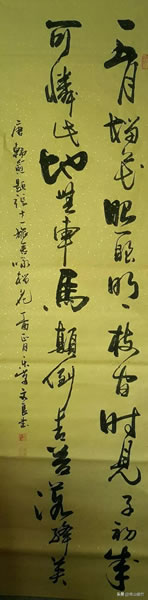 五月榴花照眼明枝间时见子初成
可怜此地无车马颠倒青苔落绛英
唐韩愈题张十一旅舍咏榴花丁酉